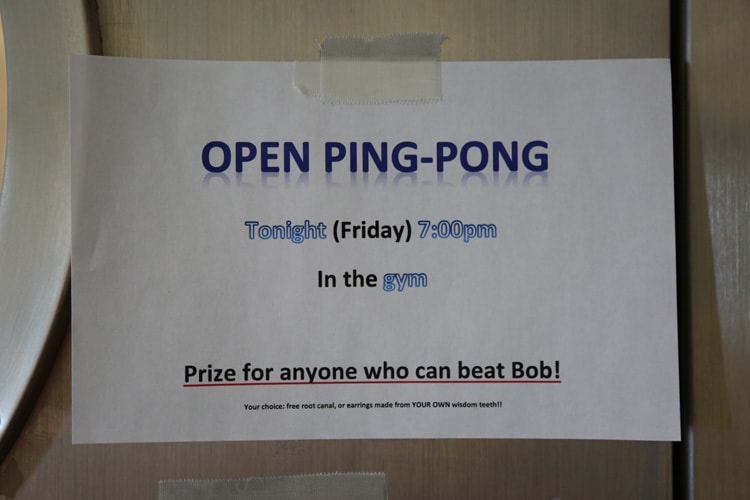 OPEN PING-PONG
Tonight (Friday) 7:00pm
In the gym
Prize for anyone who can beat Bob!
Your choice: free root canal, or earrings made from YOUR OWN wisdom teeth!!